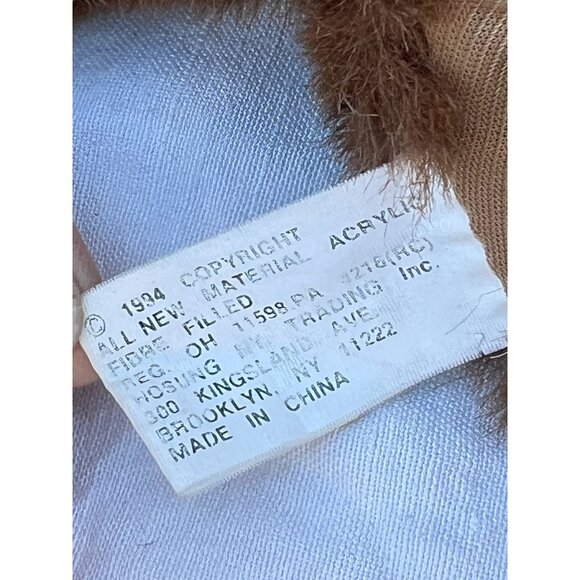 © 1994 COPYRIGHT
ALL NEW MATERIAL ACRYLIC
FIBRE FILLED
REG. OH 11598 PA 4216(RC)
HOSUNG NY. TRADING Inc.
300 KINGSLAND AVE.
BROOKLYN, NY 11222
MADE IN CHINA